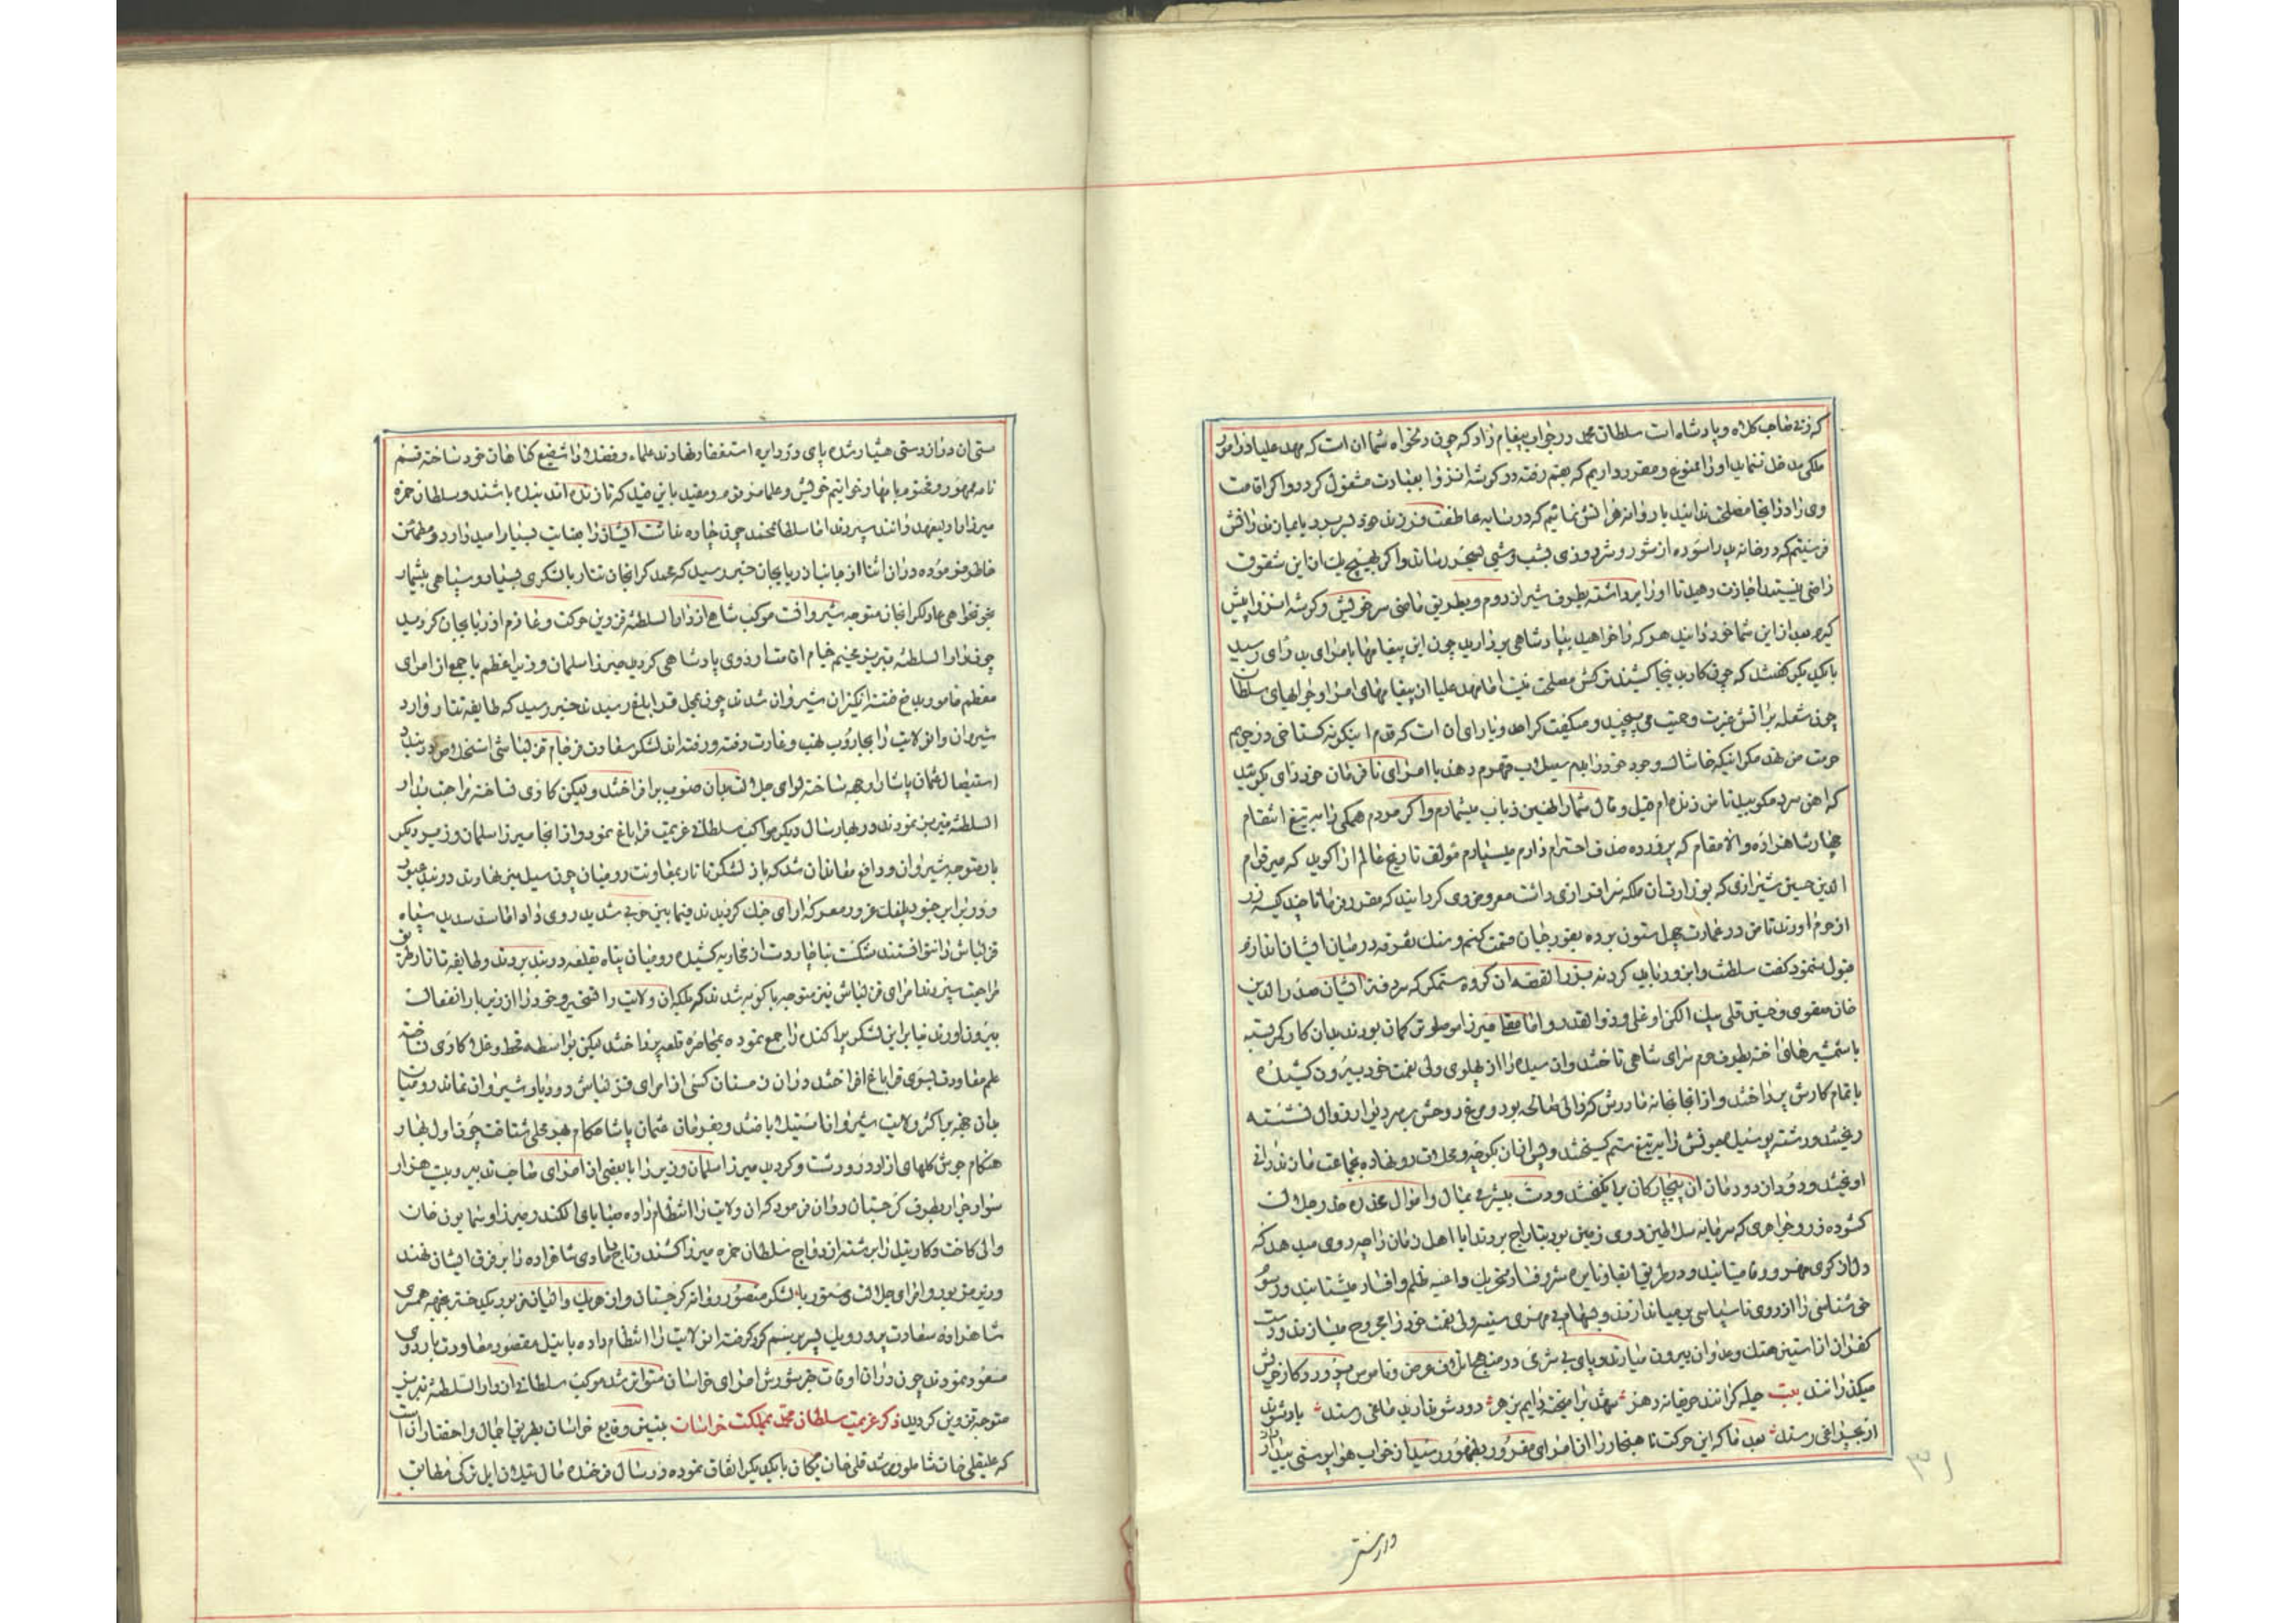 که زنے صاحب کلاه و پادشاه است سلطان محمد در جواب پیغام داد که چون دلخواه شما ان است که مهد علیا در امور
ملکی مدخل ننماید او را ممنوع و مقرر داریم که بقم رفته در کوشه انزوا بعبادت مشغول کردد و اکر اقامت
وی را در انجا مصلحت ندانید باز روانه هراتش نمائیم که در سایه عاطفت فرزند خود بسر برد یا بمازندرانش
فرستیم که در خانه پدر اسوده از شور و شر روزی بشب و شبی بسحر رساند و اکر بهیچ یک از این شقوق
راضی نیستید اجازت دهید تا او را برداشته بطرف شیراز روم و بطریق ماضی سر خویش و کوشه انزوا پیش
کیرم بعد از این شما خود دانید هر که را خواهید بپادشاهی بردارید چون این پیغامها بامرای بد رای رسید
با یکدیکر کفتند که چون کار بدینجا کشید ترکش مصلحت نیست اما مهد علیا از پیغامهای امرا و جوابهای سلطان
چون شعله بر اتش غیرت و حمیت می پیچید و میکفت کرا حد و یارای ان است که قدم اینکونه کستاخی در حریم
حرمت من نهد مکر اینکه خاشاک وجود خود را بدم سیلاب قهرم دهد با امرای نافرمان خود رای بکوئید
که اهن سرد مکوبید تا من زنده ام قیل و قال شما را طنین ذباب میشمارم و اکر مردم همکی را به تیغ انتقام
چهار شاهزاده والامقام که پرورده صدف احترام دارم میسپارم مؤلف تاریخ عالم ارا کوید که میر قوام
الدین حسین شیرازی که بوزارت ان ملکه سرافرازی داشت معروض وی کردانید که مقرر فرما تا چند کیسه زر
از حرم اورند تا من در عمارت چهل ستون برده بقورچیان قسمت کنم و سنک تفرقه در میان ایشان اندازم
قبول ننمود کفت سلطنت را بزور باید کرد نه بزر القصه ان کروه ستمکر که سردفتر ایشان صدرالدین
خان صفوی و حسین قلی بیک و ذوالقدر و میرزا موصلوی ترکمان بودند بمیان کار کمر بسته
با شمشیرهای اخته بطرف حرم سرای شاهی تاختند وان سیده را از پهلوی ولی نعمت خود بیرون کشیده
باتمام کارش پرداختند و از انجا بخانه مادرش که زالی صالحه بود و مرغ روحش بر سر دیوار زوال نشسته
ریختند و رشته پوسیده عمرش را به تیغ ستم کسیختند و پس از ان و محلات رو نهاده بجماعت مازندرانی
اویختند و دود از دودمان ان بیچارکان برانکیختند و دست بیشرمی بمال و اموال مخدره خدر جلالت
کشوده زر و جواهری که سرمایه سلاطین روی زمین بود بتاراج بردند ایا اهل زمان را چه روی میدهد که
دل از کوی مهر و وفا میتابند و در طریق انقیاد نایره شر و فساد بتحریک داعیه ظلم و افساد میشتابند و رسوم
حق شناسی را از روی ناسپاسی بر میاندازند و بسهام بی مهری سینه ولی نعمت خود را مجروح میسازند و دست
کفران از استین هتک و عدوان بیرون میارند و پای بی شرمی در منهج اتلاف عرض و ناموس و روزکار خویش
میکذرانند بیت چله کر انند حریفانه دهر مهد بر امیخته دایم بزهر دود شو نارید ماغی رسد باد شوند
از بچراغی رسد بعد ما که این حرکت ناهنجار از ان امرای مغرور بظهور رسید از خواب هوا پرستی بیدار
ورزستی
مستی ان دراز دستی هشیار شده پای در دایره استغفار نهادند علماء و فضلا را شفیع کناهان خود ساخته قسم
نامه ممهور و مختوم بامهار خوانیم خویش و علما مرقوم و مقید باین قید که تا زنده اند بنده باشند و سلطان حمزه
میرزا را ولیعهد دانند سپردند اما سلطان محمد چون چاره نداشت ایشان را بعنایت بسیار امیدوار و مطمئن
خاطر فرموده در ان اثنا از جانب اذربایجان خبر رسید که محمد کرایخان تتار با لشکری بسیار و سپاهی بیشمار
بخونخواهی عادل کرایخان متوجه شیروانست موکب شاهی از دار السلطنه قزوین حرکت و عازم اذربایجان کردید
چون دار السلطنه تبریز مخیم خیام اردوی پادشاهی کردید میرزا سلمان وزیر اعظم با جمعی از امرای
معظم مامور بدفع فتنه انکیزان شیروان شدند چون بمحل قراباغ رسیدند خبر رسید که طایفه تتار وارد
شیروان وان ولایت را بجاروب نهب و غارت رفته و رفته اند لشکر سعادت فرجام قزلباش استخلاص دربند و
استیصال عثمان پاشا را وجهه ساخته لوای جلادت بدان صوب برافراختند ولیکن کاری نساخته مراجعت بدار
السلطنه تبریز نمودند در بهار سال دیکر مواکب سلطانی عزیمت قراباغ نمود و از انجا میرزا سلمان وزیر دیکر
بار متوجه شیروان و دافع مفاسدان شد که باز لشکر تاتار بمعاونت رومیان چون سیل بنیان نهادند دربند عبور
و در برابر جنود ظفر ورود معرکه ارای جنک کردیدند فیما بین حربی شدید روی داد اما سد سدید سپاه
قزلباش را نتوانستند شکست ناچار دست از محاربه کشیده رومیان پناه بقلعه دربند بردند و طایفه تاتار طریق
مراجعت سپردند امرای قزلباش نیز متوجه باکویه شدند که بلکه ان ولایت را تسخیر و خود را از زیر بار انفعال
بیرون اورند بنابراین لشکر پراکنده را جمع نموده بمحاصره قلعه پرداختند لیکن بواسطه قحط و غلا کاری نساخته
علم معاودت بسوی قراباغ افراختند در ان زمستان کسی از امرای قزلباش در دیار شیروان نماند رومیان
بدان جهه بر اکثر ولایت شیروانات استیلا یافتند و بفرمان عثمان پاشا حکام بهر محلی شتافت چون اول بهار
هنکام جوش کلهای ازادر و دشت و کردید میرزا سلمان وزیر را با بعضی از امرای صاحب تدبیر و بیست هزار
سوار جرار بطرف کرجستان روان فرمود که ان ولایت را انتظام داده صبایای الکسندر میرزا و سماون خان
والی کاخت و کارتیل را برشته ازدواج سلطان حمزه میرزا کشند و تاج دامادی شاهزاده را بر فرق ایشان نهند
وزیر مزبور و امرای جلادت دستور با لشکر منصور روانه کرجستان و از هر یک والیان مزبور یک دختر بجهه همسری
شاهزاده سعادت پرور و یک پسر برسم کرو کرفته ان ولایت را انتظام داده با نیل مقصود معاودت باردوی
مسعود نمودند چون در ان اوقات خبر شورش امرای خراسان متواتر شد موکب سلطانے از دار السلطنه تبریز
متوجه قزوین کردید ذکر عزیمت سلطان محمد بمملکت خراسان تبیین وقایع خراسان بطریق اجمال و اختصار ان است
که علیقلی خان شاملو و مرشد قلی خان با یکدیکر اتفاق نموده در سال فرخنده فال ئیل ترکی مطابق
۳۱